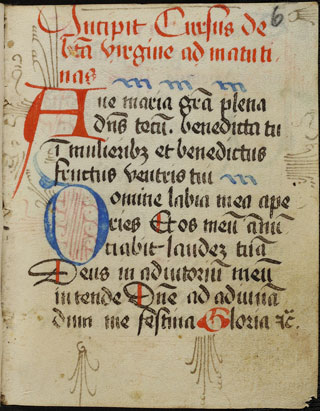 Incipit Cursus de 6
bta virgine ad matuti
nas
Aue maria gra plena
dns tecu. benedicta tu
I mulieribz et benedictus
fructus ventris tui
Domine labia mea ape
ries Et os meu annu
tiabit laudez tua
Deus in adiutoriu meu
intende Dne ad adiuua
dum me festina Gloria ⁊c.